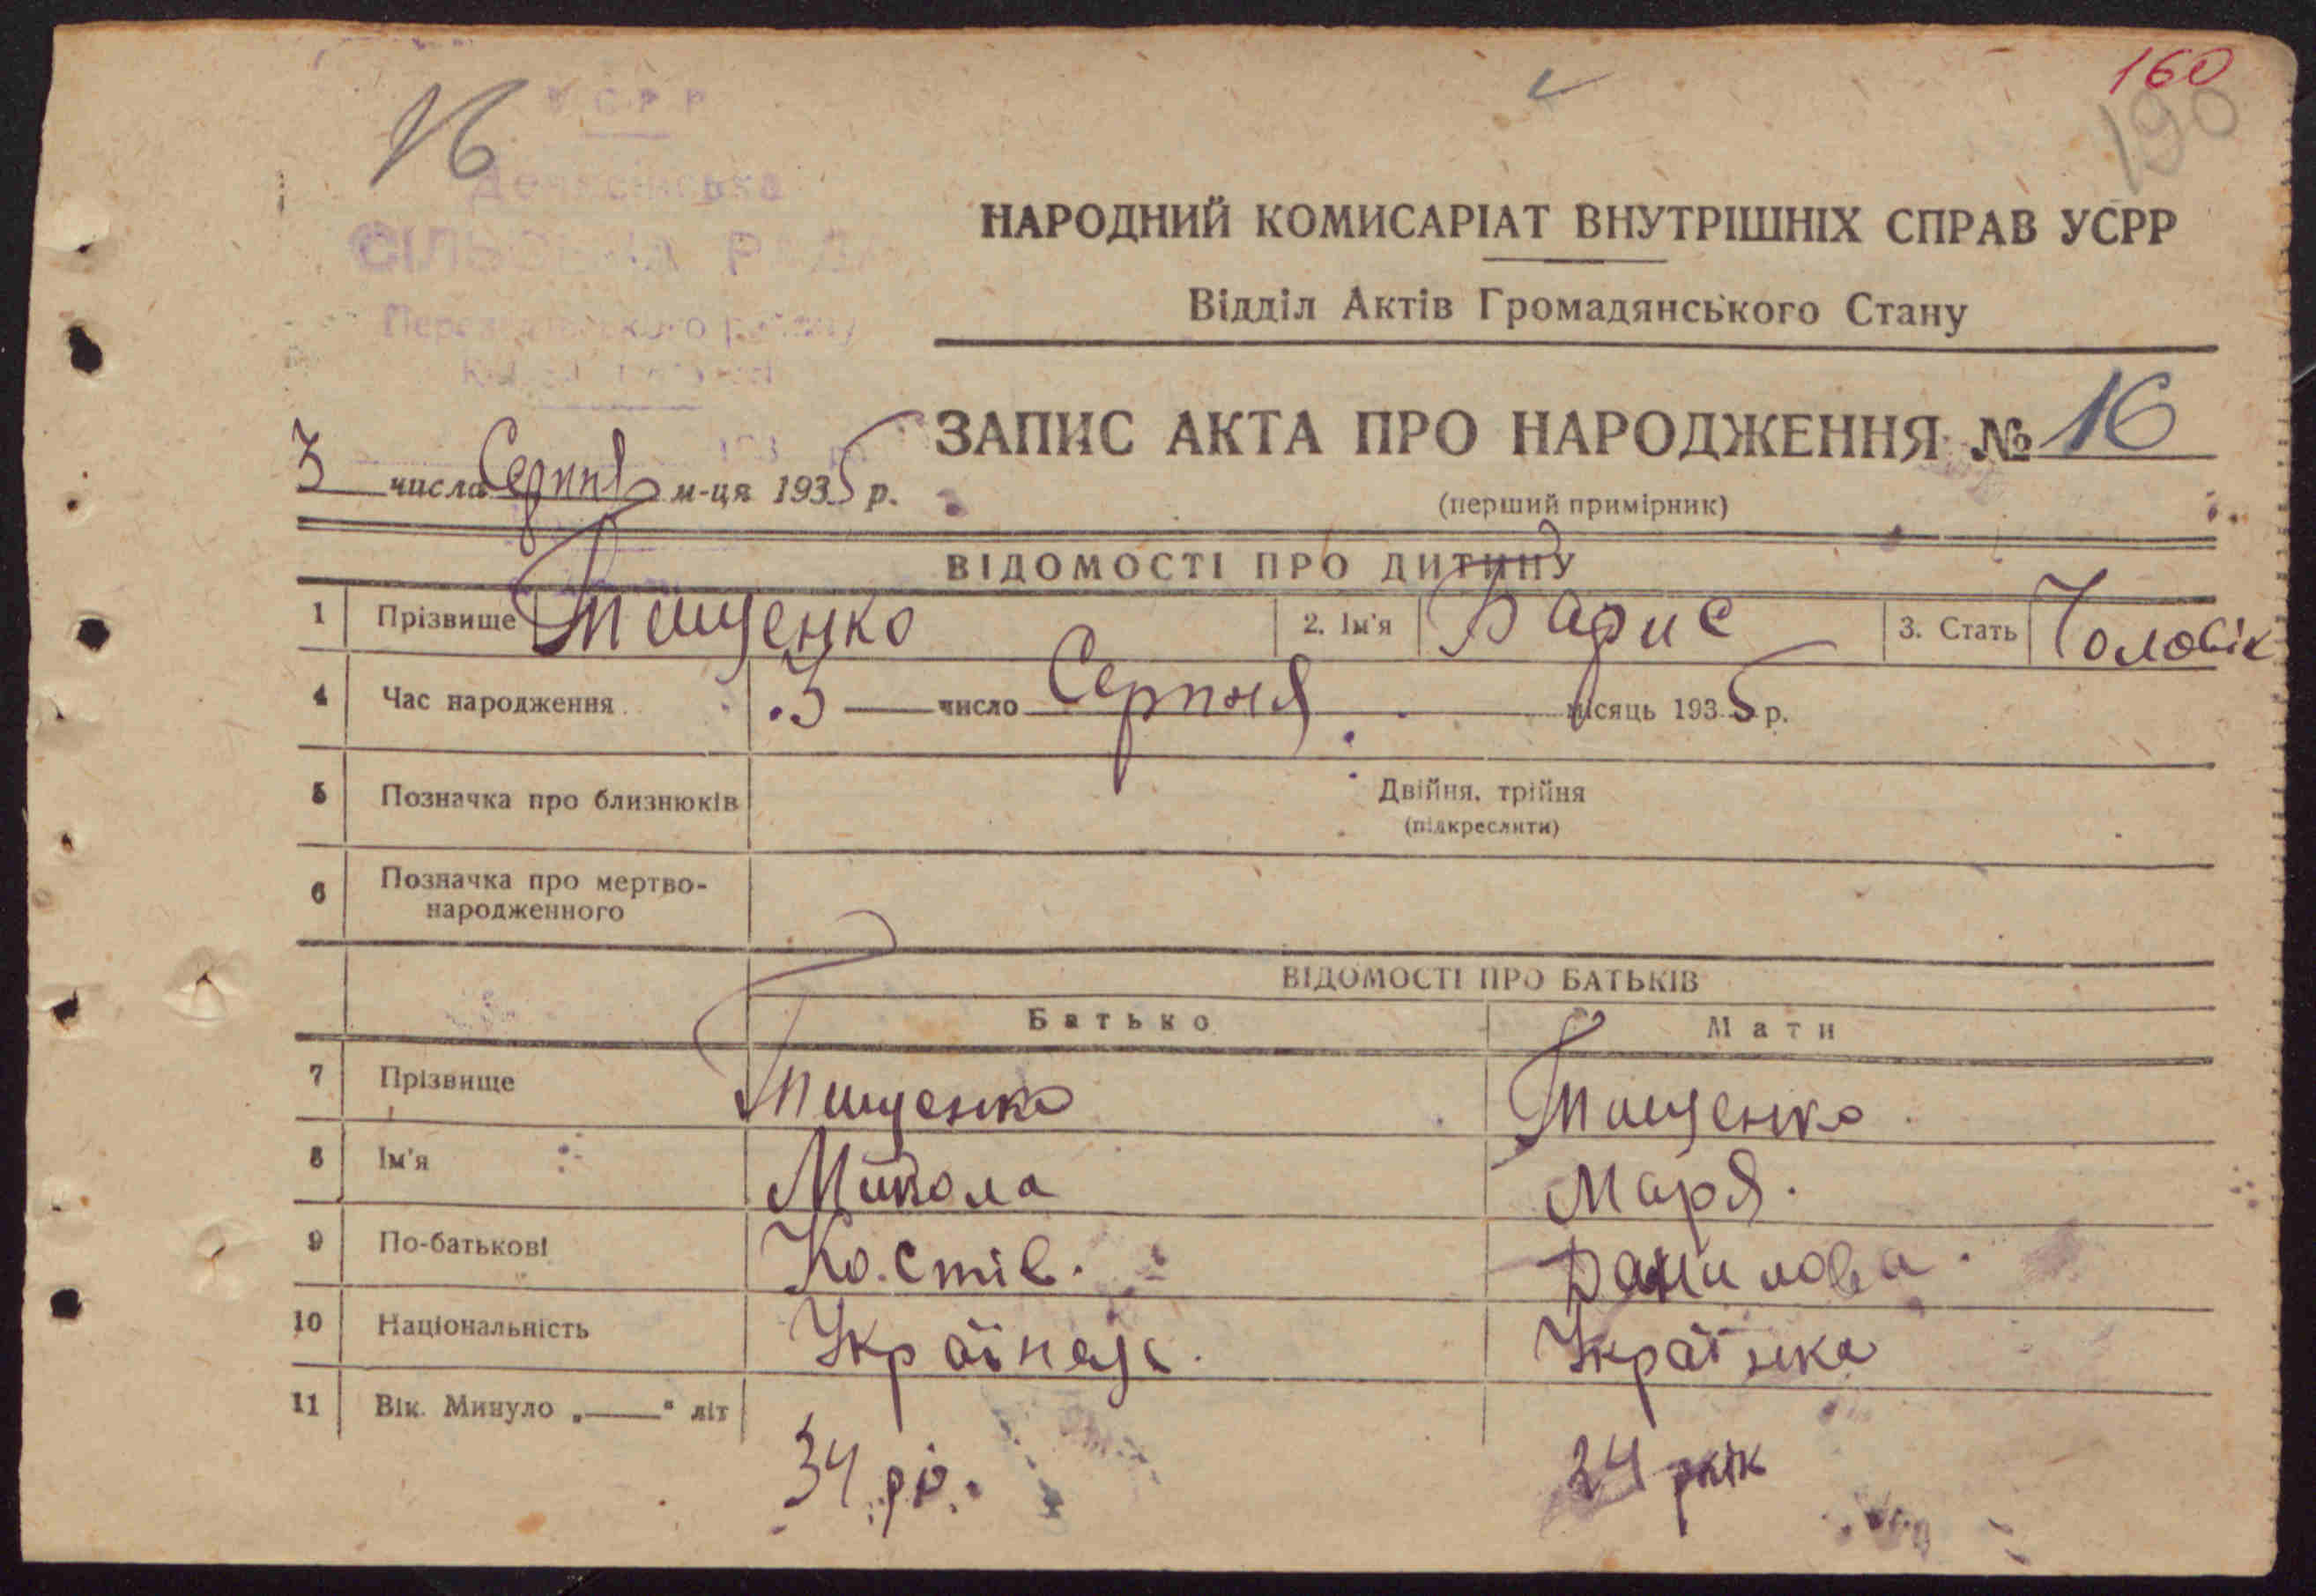 160
190
16
УСРР
СІЛЬСЬКА РАДА
НАРОДНИЙ КОМИСАРІАТ ВНУТРІШНІХ СПРАВ УСРР
Відділ Актів Громадянського Стану
ЗАПИС АКТА ПРО НАРОДЖЕННЯ № 16
3 числа Серпня м-ця 1935 р.
(перший примірник)
ВІДОМОСТІ ПРО ДИТИНУ
1 Прізвище Тищенко 2. Ім'я Барис 3. Стать Чоловік
4 Час народження 3 число Серпня місяць 1935 р.
5 Позначка про близнюків Двійня, трійня
(підкреслити)
6 Позначка про мертво-
народженного
ВІДОМОСТІ ПРО БАТЬКІВ
Батько Мати
7 Прізвище Тищенко Тищенко
8 Ім'я Микола Маря.
9 По-батькові Ко.стів. Данилова.
10 Національність Українець. Українка
11 Вік. Минуло „——" літ
34 рі. 24